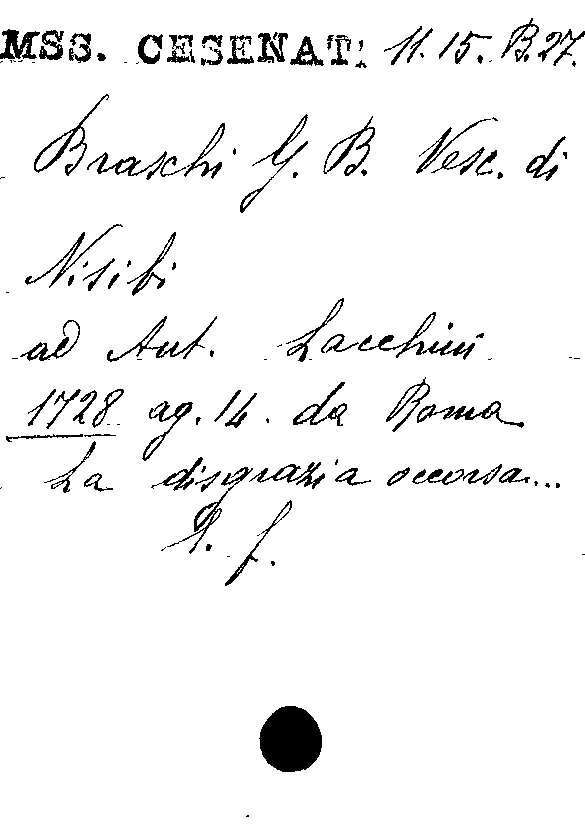 MSS. CESENATI 11.15. B.27.
Braschi G. B. Vesc. di
Nisibi
ad Ant. Lacchini
1728 ag. 14. da Roma
La disgrazia occorsa...
l. f.